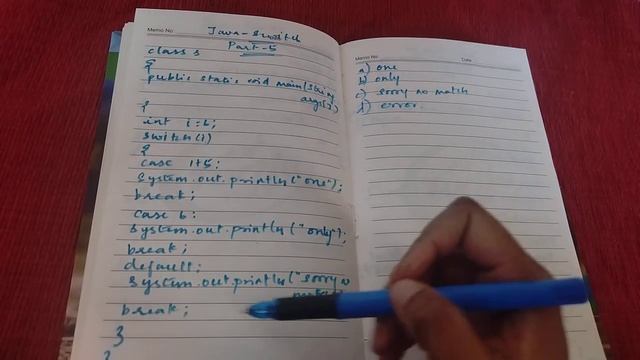 Memo No
Java-switch
Part-5
class s
{
public static void main(String
args[])
{
int i=6;
switch(i)
{
case 1+5:
System.out.println("one");
break;
case 6:
System.out.println("only");
break;
default;
System.out.println("sorry no
match
break;
}
Memo No.
Date
a) one
b) only
c) sorry no match
d) error.